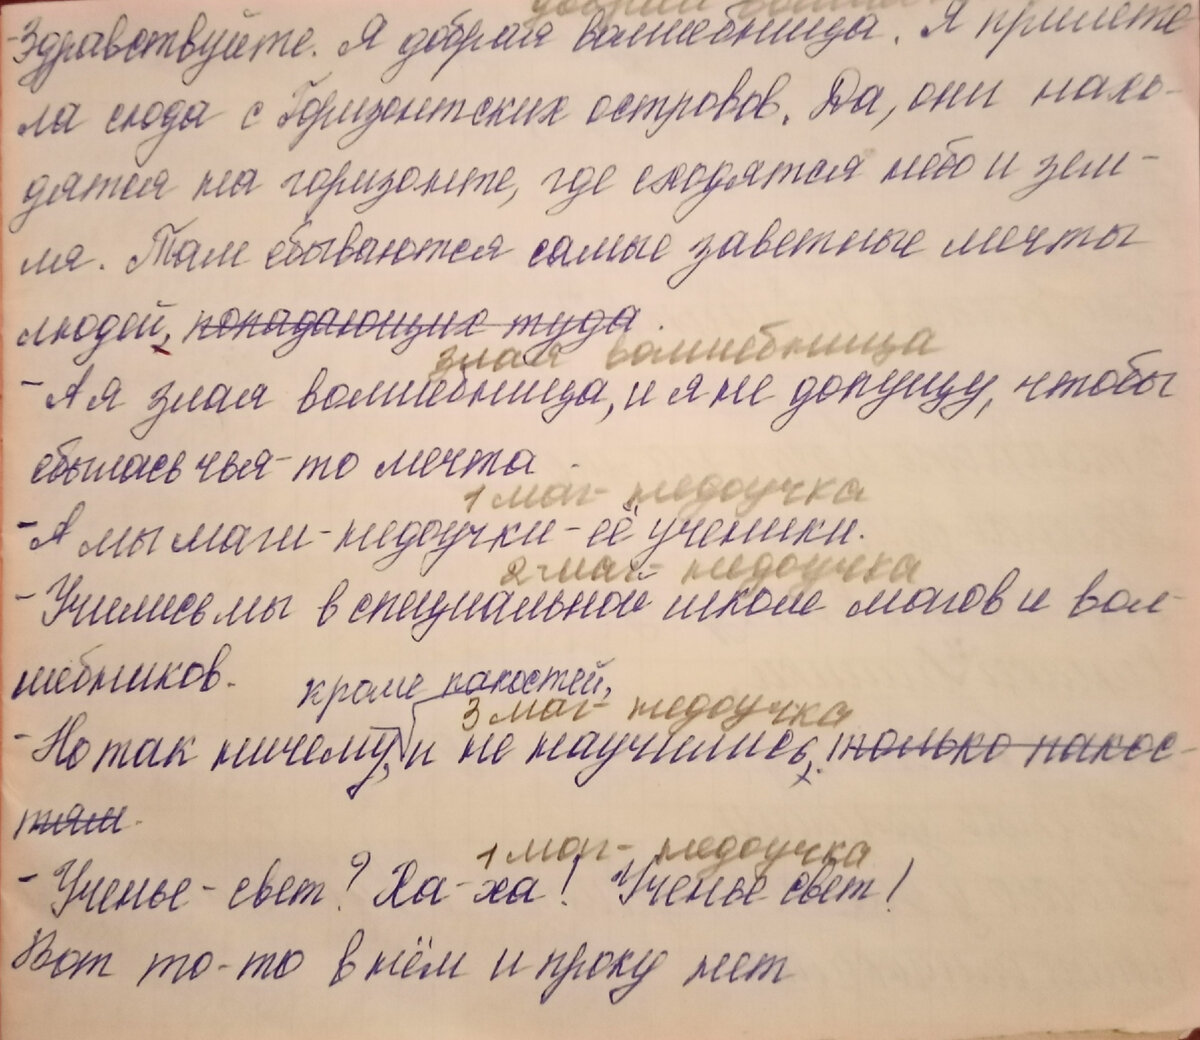 -Здравствуйте. Я добрая волшебница. Я прилете
ла сюда с Горизонтских островов. Да, они нахо-
дятся на горизонте, где сходятся небо и зем-
ля. Там сбываются самые заветные мечты
людей, попадающих туда.
злая волшебница
- А я злая волшебница, и я не допущу, чтобы
сбылась чья-то мечта.
1 маг-недоучка
- А мы маги-недоучки - её ученики.
2-маг-недоучка
- Учились мы в специальной школе магов и вол-
шебников.
кроме пакостей,
3 маг-недоучка
- Но так ничему, и не научились, только пакос-
тям.
1 маг-недоучка
- Ученье - свет? Ха-ха! Ученье свет!
Вот то-то в нём и проку нет